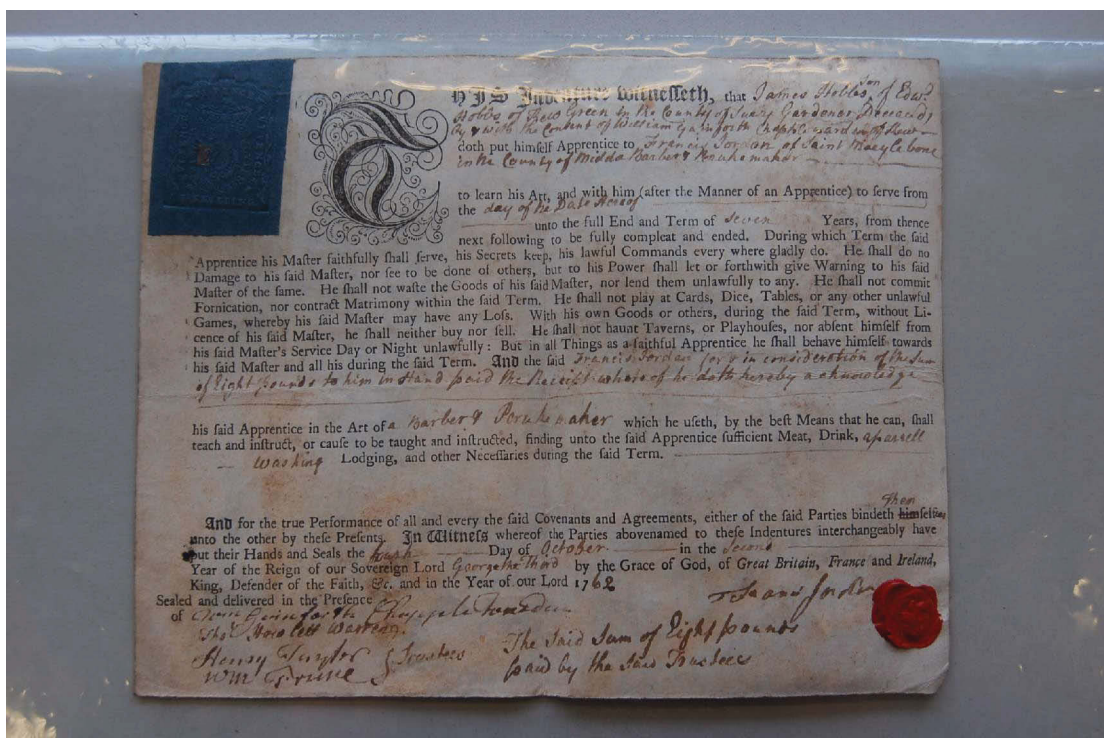 THIS Indenture Witnesseth, that James Hobbs Son of Edwd.
Hobbs of Kew Green in the County of Surry Gardener Deceased,
by & with the Consent of William Gainforth Chapple warden of Kew
doth put himself Apprentice to Francis Jordan of Saint Marylebone
in the County of Middx Barber & Perukemaker
to learn his Art, and with him (after the Manner of an Apprentice) to serve from
the day of the Date hereof
unto the full End and Term of Seven Years, from thence
next following to be fully compleat and ended. During which Term the said
Apprentice his Master faithfully shall serve, his Secrets keep, his lawful Commands every where gladly do. He shall do no
Damage to his said Master, nor see to be done of others, but to his Power shall let or forthwith give Warning to his said
Master of the same. He shall not waste the Goods of his said Master, nor lend them unlawfully to any. He shall not commit
Fornication, nor contract Matrimony within the said Term. He shall not play at Cards, Dice, Tables, or any other unlawful
Games, whereby his said Master may have any Loss. With his own Goods or others, during the said Term, without Li-
cence of his said Master, he shall neither buy nor sell. He shall not haunt Taverns, or Playhouses, nor absent himself from
his said Master's Service Day or Night unlawfully: But in all Things as a faithful Apprentice he shall behave himself towards
his said Master and all his during the said Term. And the said Francis Jordan for & in consideration of the Sum
of Eight pounds to him in Hand paid the Receipt whereof he doth hereby acknowledge
his said Apprentice in the Art of a Barber & Perukemaker which he useth, by the best Means that he can, shall
teach and instruct, or cause to be taught and instructed, finding unto the said Apprentice sufficient Meat, Drink, aparrell
Washing Lodging, and other Necessaries during the said Term.
Them
And for the true Performance of all and every the said Covenants and Agreements, either of the said Parties bindeth himself
unto the other by these Presents. In Witness whereof the Parties abovenamed to these Indentures interchangeably have
put their Hands and Seals the Day of October in the Second
Year of the Reign of our Sovereign Lord George the Third by the Grace of God, of Great Britain, France and Ireland,
King, Defender of the Faith, &c. and in the Year of our Lord 1762
Sealed and delivered in the Presence
of Wm Gainforth Chappele Warden
Thos Howlett Warren
Henry Taylor } Trustees
Wm
Francis Jordan
The Said Sum of Eight pounds
paid by the Said Trustees